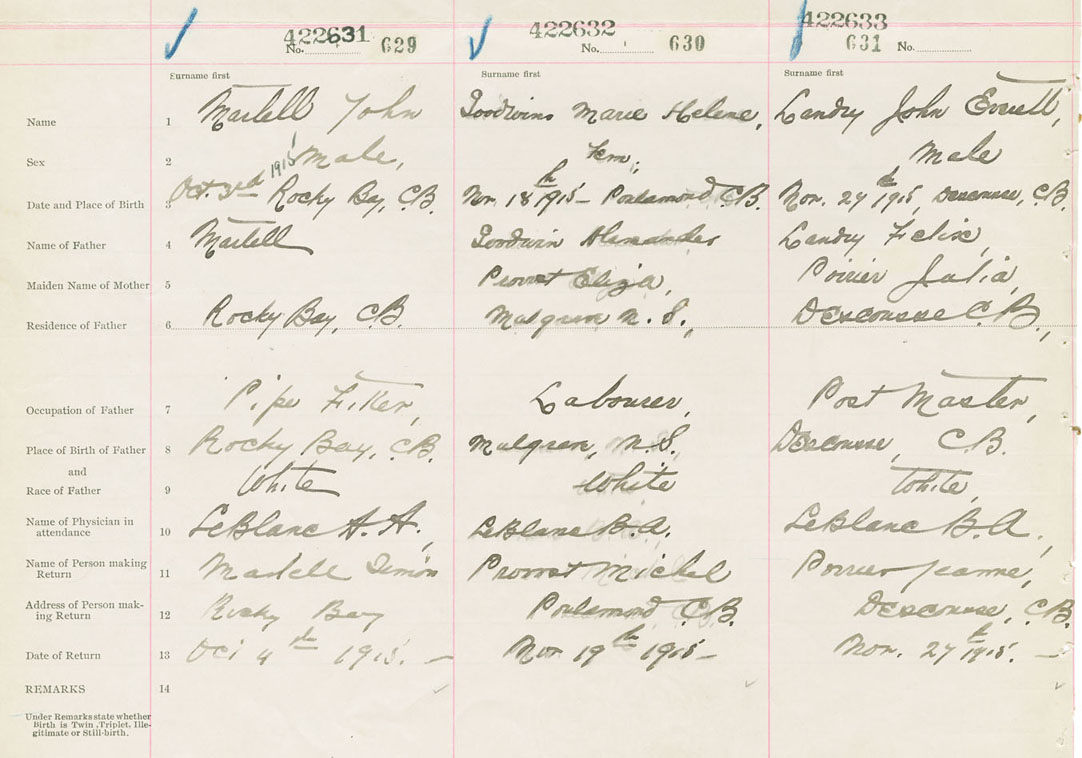 422631 422632 422633
No. 629 No. 630 631 No.
Surname first Surname first Surname first
Name 1 Martell John Goodwins Marie Helene, Landry John Everett,
Sex 2 Male, Fem, Male
Date and Place of Birth 3 Oct. 3rd 1915 Rocky Bay, C.B. Nov. 18th 1915 - Poulamond C.B. Nov. 27th 1915, Descousse, C.B.
Name of Father 4 Martell Goodwin Alexander Landry Felix,
Maiden Name of Mother 5 Provost Eliza, Poirier Julia,
Residence of Father 6 Rocky Bay, C.B. Mulgrave N.S., Descousse C.B.,
Occupation of Father 7 Pipe Fitter, Labourer, Post Master,
Place of Birth of Father 8 Rocky Bay, C.B. Mulgrave, N.S. Descousse, C.B.
and
Race of Father 9 White White White,
Name of Physician in
attendance 10 LeBlanc A.A., LeBlanc B.A. LeBlanc B.A.,
Name of Person making
Return 11 Martell Simon Provost Michel Poirier Jeanne,
Address of Person mak-
ing Return 12 Rocky Bay Poulamond, C.B. Descousse, C.B.
Date of Return 13 Oct 4th 1915. - Nov 19th 1915 - Nov. 27th 1915. -
REMARKS 14
Under Remarks state whether
Birth is Twin, Triplet, Ille-
gitimate or Still-birth.